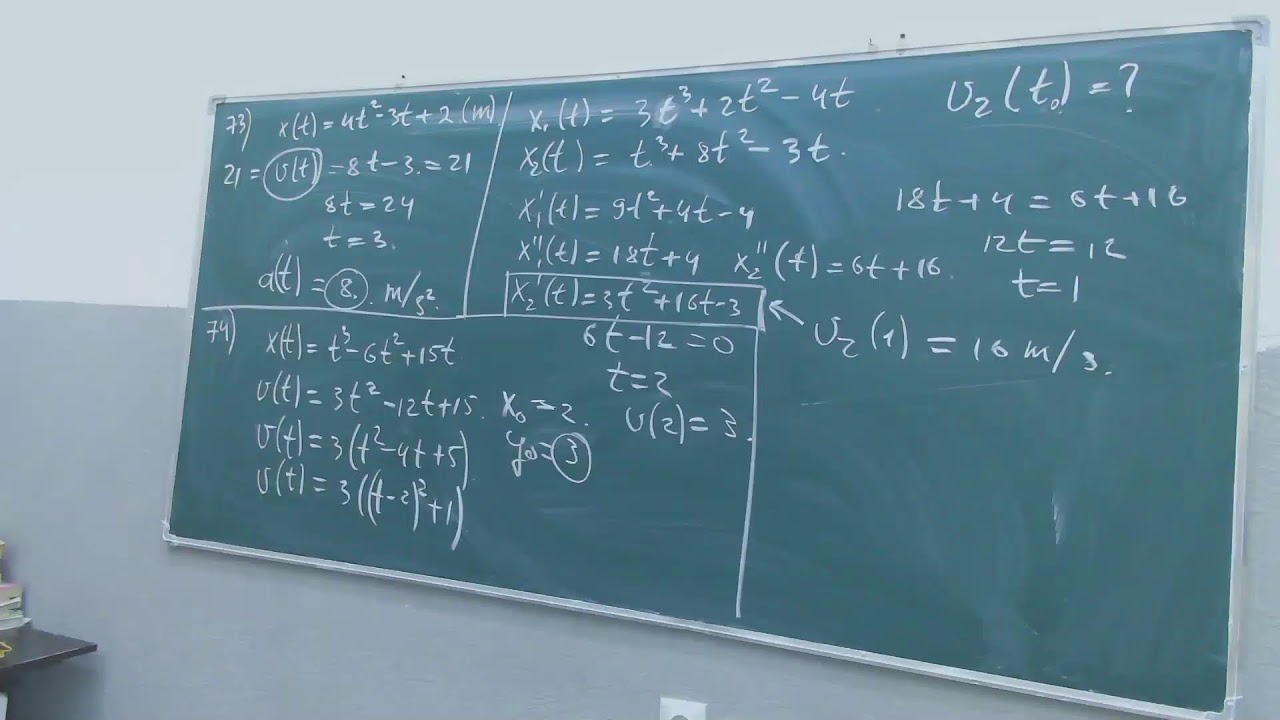 73)
x(t)=4t²-3t+2 (m)
21 = v(t) = 8t-3 = 21
8t=24
t=3.
a(t)=8. m/s².
x₁(t) = 3t³+2t²-4t
x₂(t) = t³+8t²-3t.
x₁'(t)=9t²+4t-4
x₁''(t)=18t+4 x₂''(t)=6t+16.
x₂'(t)=3t²+16t-3
v₂(t₀)=?
18t+4 = 6t+16
12t=12
t=1
v₂(1) = 16 m/s.
74)
x(t)=t³-6t²+15t
v(t)=3t²-12t+15.
v(t)=3(t²-4t+5)
v(t)=3((t-2)²+1)
x₀=2.
y₀=3
6t-12=0
t=2
v(2)=3.